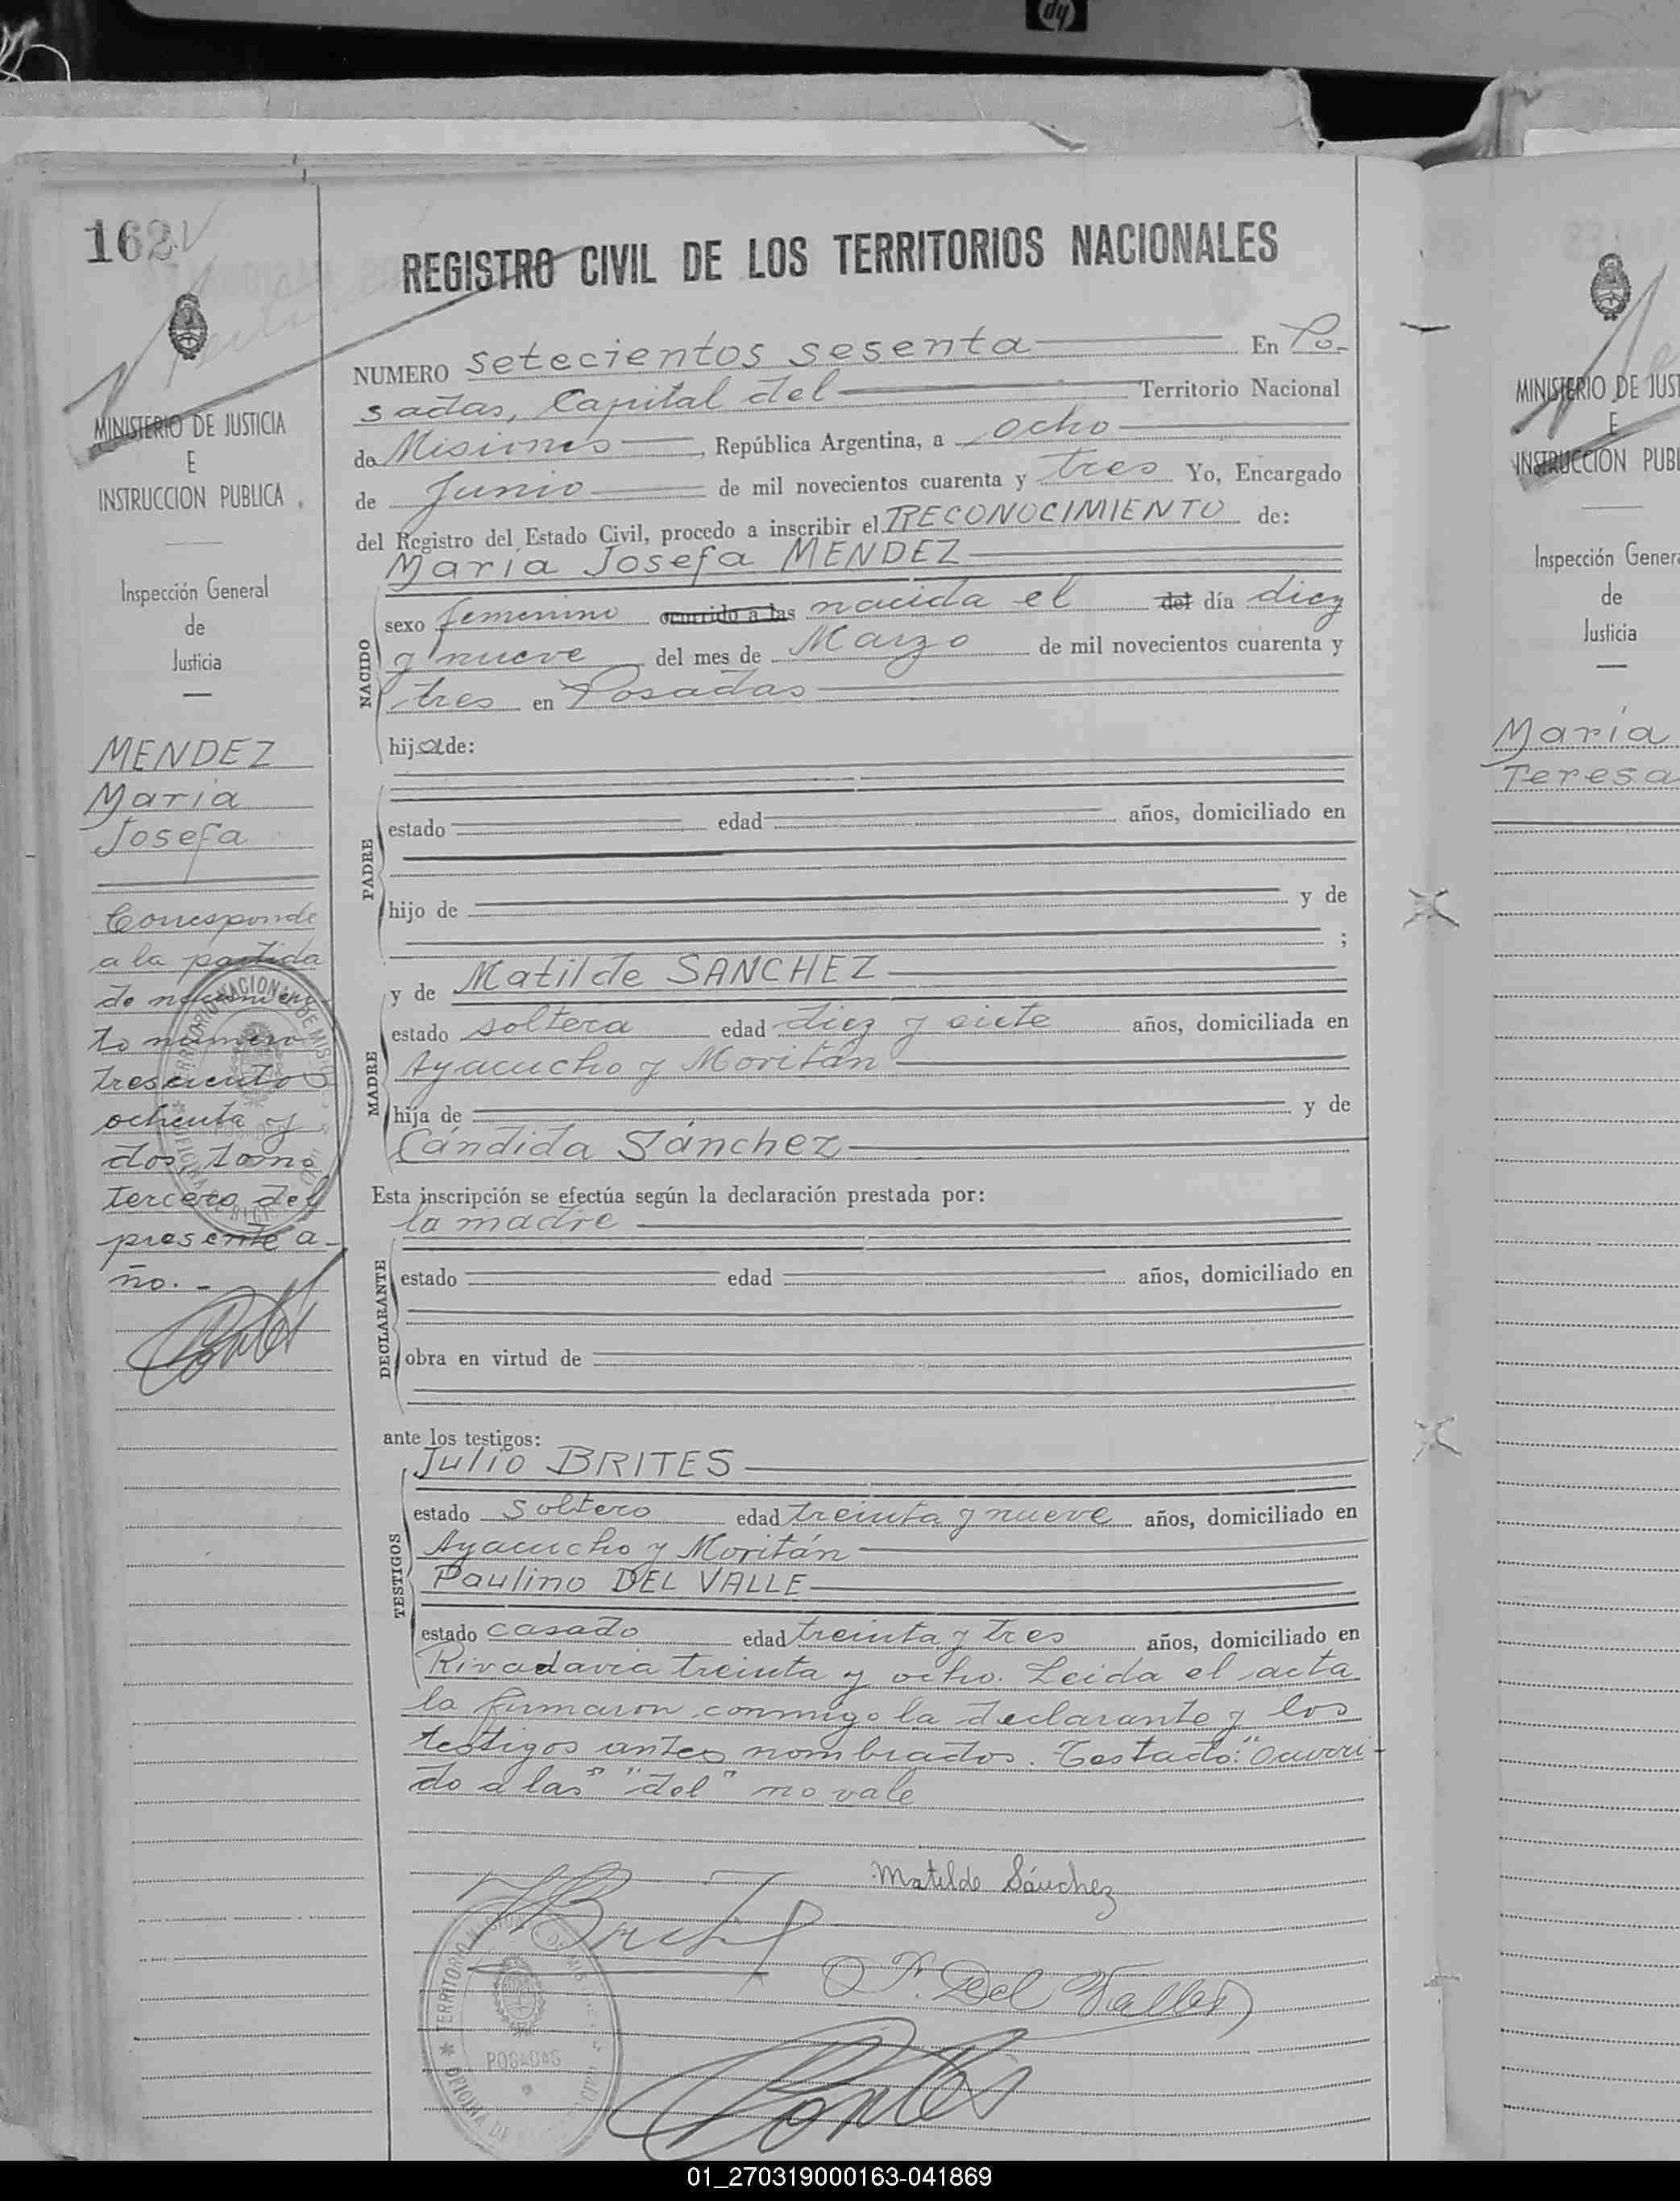 hp
162
REGISTRO CIVIL DE LOS TERRITORIOS NACIONALES
MINISTERIO DE JUSTICIA
E
INSTRUCCION PUBLICA
Inspección General
de
Justicia
MENDEZ
María
Josefa
Corresponde
a la partida
de nacimien-
to número
trescientos
ochenta y
dos, tomo
tercero del
presente a-
ño. -
NUMERO setecientos sesenta En Po-
sadas, Capital del Territorio Nacional
de Misiones, República Argentina, a ocho
de Junio de mil novecientos cuarenta y tres Yo, Encargado
del Registro del Estado Civil, procedo a inscribir el RECONOCIMIENTO de:
María Josefa MENDEZ
NACIDO
sexo femenino ocurrido a las nacida el del día diez
y nueve del mes de Marzo de mil novecientos cuarenta y
tres en Posadas
hija de:
PADRE
estado edad años, domiciliado en
hijo de y de
;
y de Matilde SANCHEZ
MADRE
estado soltera edad diez y siete años, domiciliada en
Ayacucho y Moritán
hija de y de
Cándida Sánchez
Esta inscripción se efectúa según la declaración prestada por:
la madre
DECLARANTE
estado edad años, domiciliado en
obra en virtud de
ante los testigos:
Julio BRITES
TESTIGOS
estado soltero edad treinta y nueve años, domiciliado en
Ayacucho y Moritán
Paulino DEL VALLE
estado casado edad treinta y tres años, domiciliado en
Rivadavia treinta y ocho. Leida el acta
la firmaron conmigo la declarante y los
testigos antes nombrados. Testado: "Ocurri-
do a las" "del" no vale
Matilde Sánchez
P. Del Valle
POSADAS
MINISTERIO DE JUST
E
INSTRUCCION PUBL
Inspección Genera
de
Justicia
María
Teresa
01_270319000163-041869